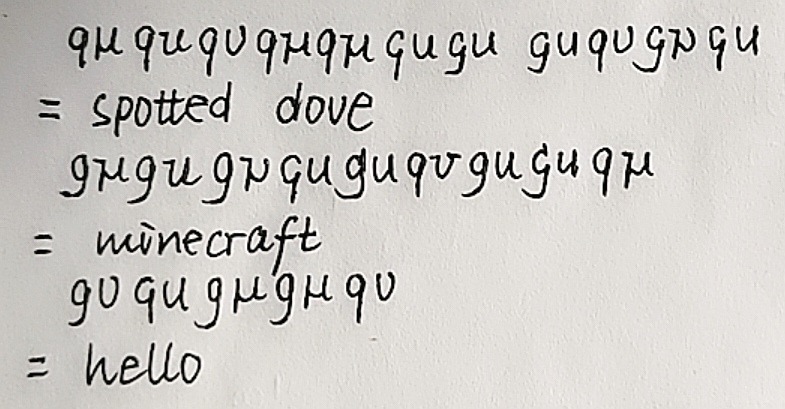 qμ qu qυ qμqμ qu gu gu qυ gν qu
= spotted dove
gμ gu gν qu gu qυ gu gu qμ
= minecraft
gυ qu gμ gμ qυ
= hello